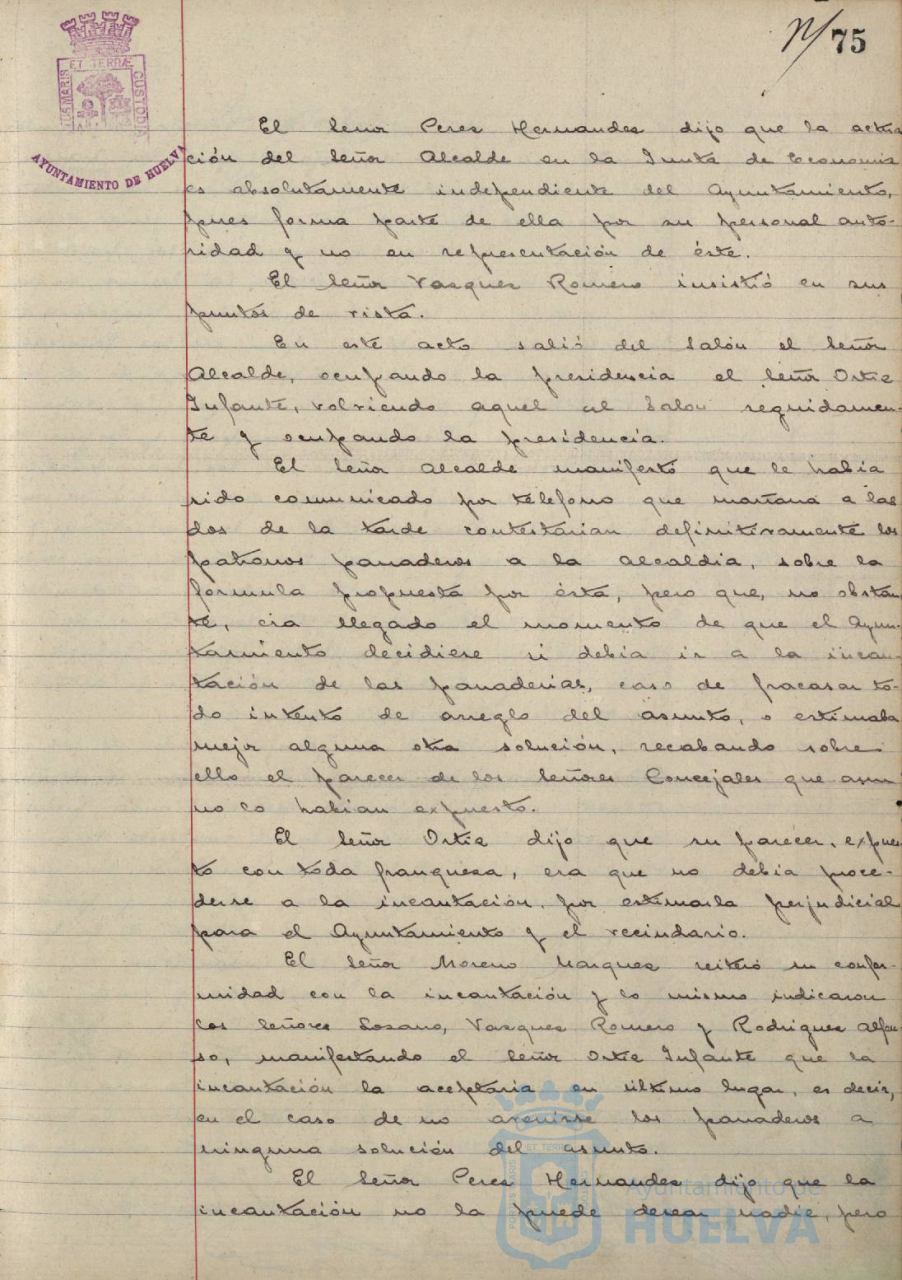 N/ 75
ET TERRÆ
CUSTODIA
AYUNTAMIENTO DE HUELVA
El Señor Peres Hernandes dijo que la actua
ción del Señor Alcalde en la Junta de Economia
es absolutamente independiente del Ayuntamiento,
pues forma parte de ella por su personal auto-
ridad y no en representación de éste.
El Señor Vasques Romero insistió en sus
puntos de vista.
En este acto salió del Salón el Señor
Alcalde, ocupando la presidencia el Señor Ortiz
Infante, volviendo aquel al Salon seguidamen-
te y ocupando la presidencia.
El Señor Alcalde manifestó que le habia
sido comunicado por telefono que mañana a las
dos de la tarde contestarian definitivamente los
patronos panaderos a la alcaldia, sobre la
formula propuesta por ésta, pero que, no obstan
te, era llegado el momento de que el Ayun-
tamiento decidiese si debia ir a la incau-
tación de las panaderias, caso de fracasar to-
do intento de arreglo del asunto, o estimaba
mejor alguna otra solución, recabando sobre
ello el parecer de los Señores Concejales que aun
no lo habian expuesto.
El Señor Ortiz dijo que su parecer, expues
to con toda franquesa, era que no debia proce-
derse a la incautación, por estimarla perjudicial
para el Ayuntamiento y el vecindario.
El Señor Moreno Marques reiteró su confor-
midad con la incautación y lo mismo indicaron
los Señores Losano, Vasques Romero y Rodrigues Alfon
so, manifestando el Señor Ortiz Infante que la
incautación la aceptaria en último lugar, es decir,
en el caso de no avenirse los panaderos a
ninguna solución del asunto.
El Señor Peres Hernandes dijo que la
incautación no la puede desear nadie, pero
Ayuntamiento de
HUELVA